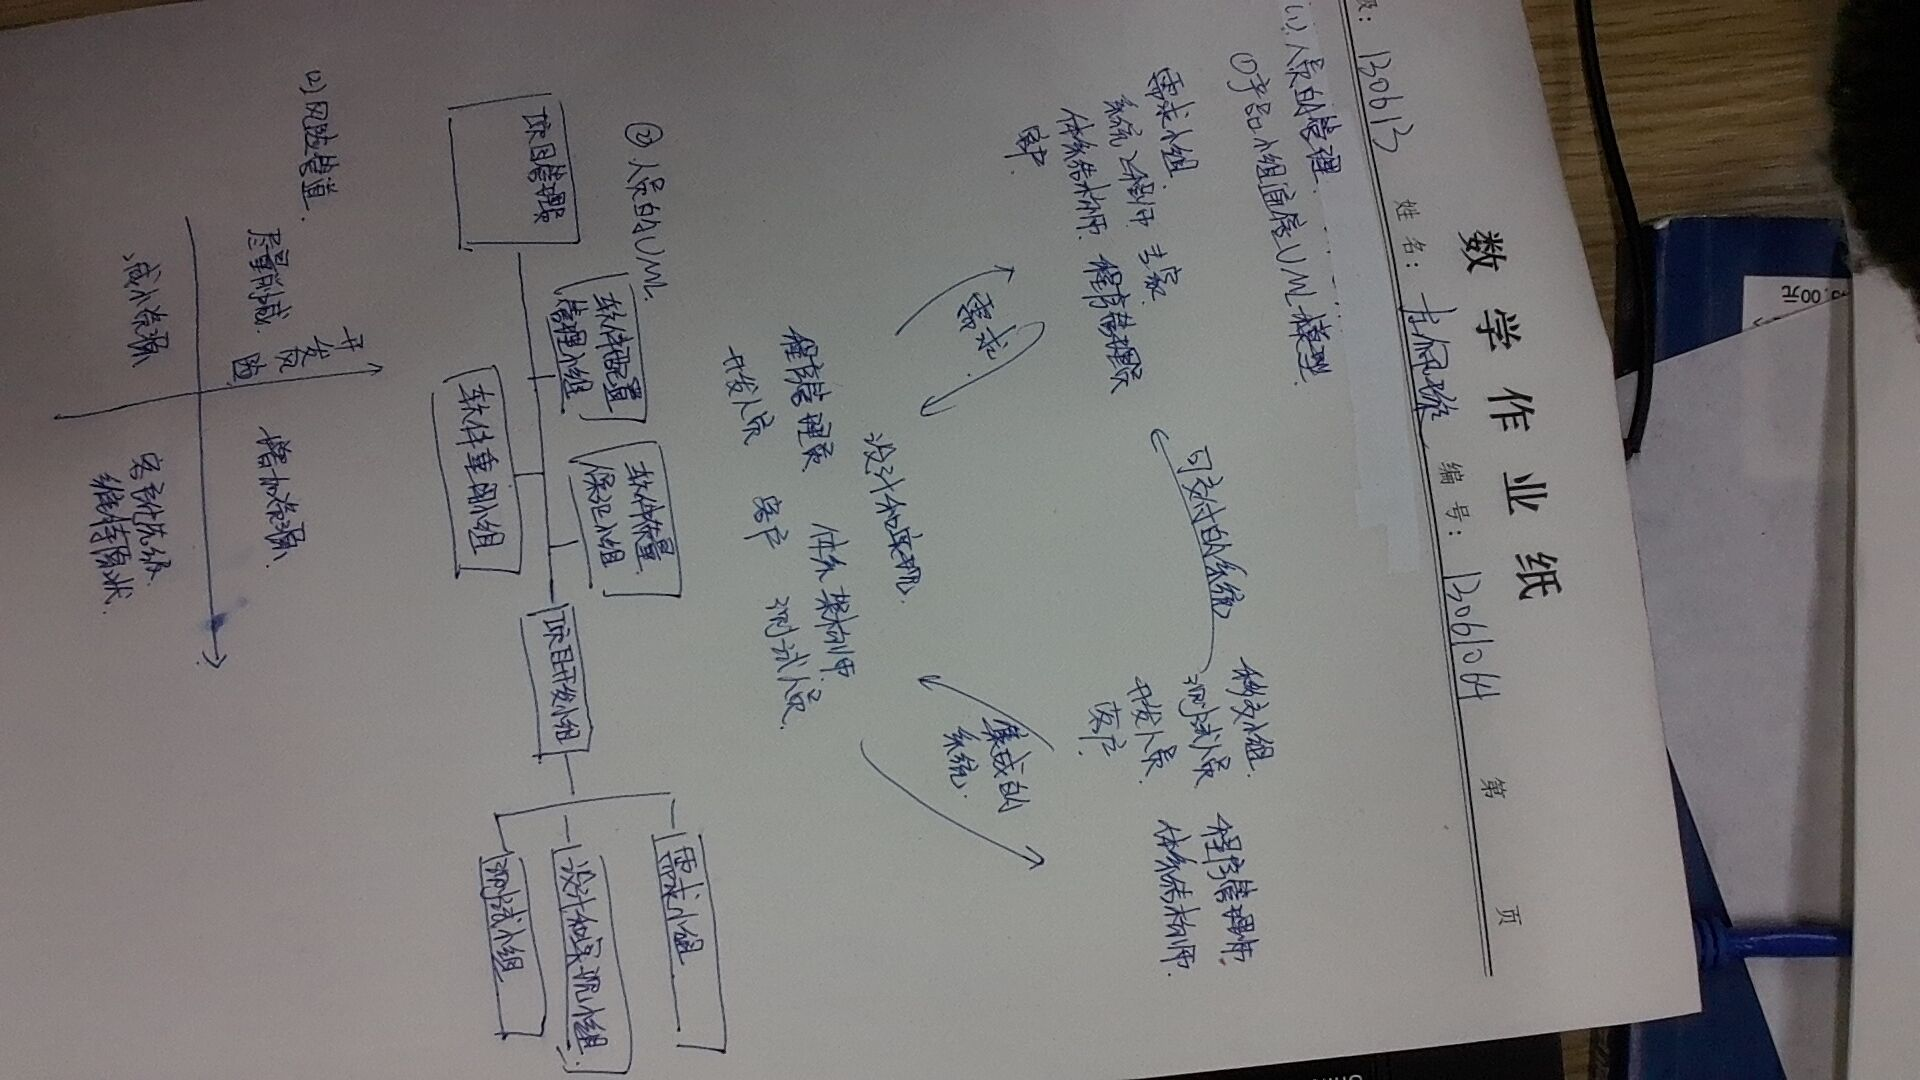 数学作业纸
级: 130613 姓名: 编号: 13061064 第 页
(1) 人员的管理.
①产品小组通信UML模型
需求小组
系统工程师 专家
体系结构师 程序管理员
客户
可交付的系统
移交小组
测试人员
开发人员
客户
程序管理师
体系结构师
需求
集成的
系统
设计和实现
程序管理员 体系架构师
开发人员 客户 测试人员
②人员的UML
项目管理层
软件配置
管理小组
软件质量
保证小组
软件重用小组
项目开发小组
需求小组
设计和实现小组
测试小组
(2)风险管道.
开发
尽量削减
增加资源
减小资源
维持原状
.00元